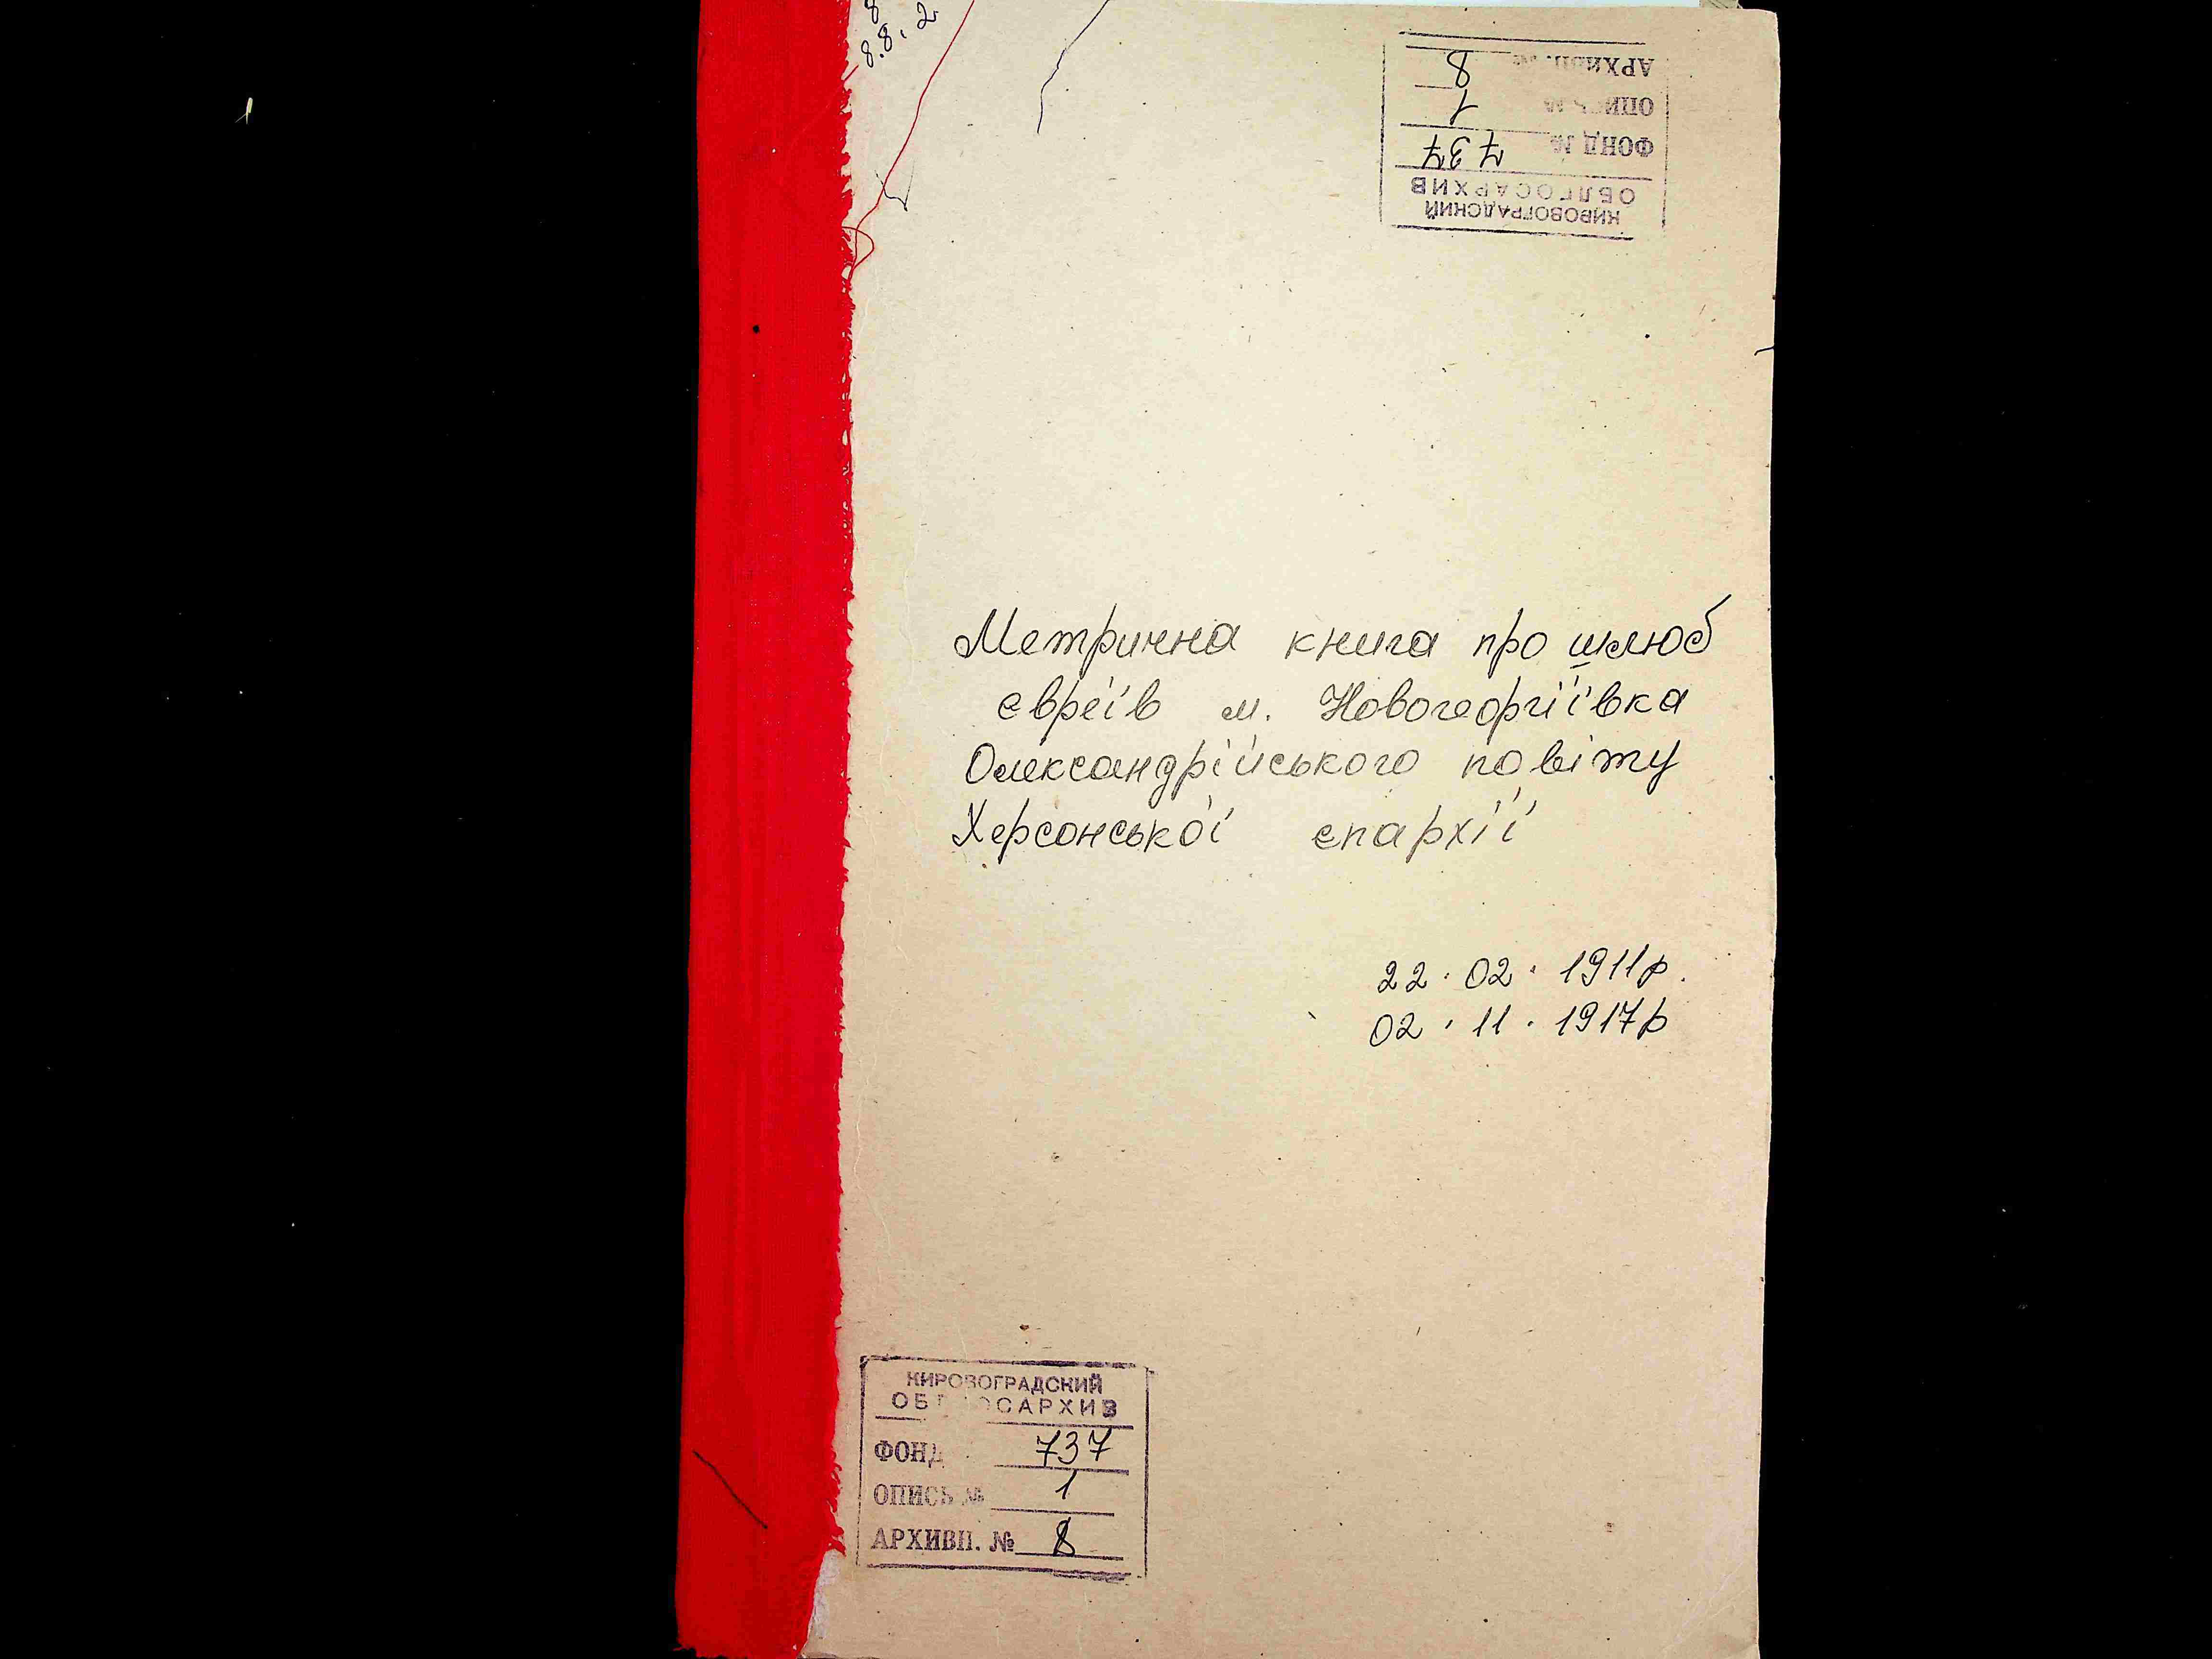 8
8.8.2
КИРОВОГРАДСКИЙ
ОБЛГОСАРХИВ
ФОНД № 737
ОПИСЬ № 1
АРХИВН. № 8
Метрична книга про шлюб
євреїв м. Новогеоргіївка
Олександрійського повіту
Херсонської єпархії
22.02.1911р.
02.11.1917р
КИРОВОГРАДСКИЙ
ОБЛГОСАРХИВ
ФОНД 737
ОПИСЬ № 1
АРХИВН. № 8